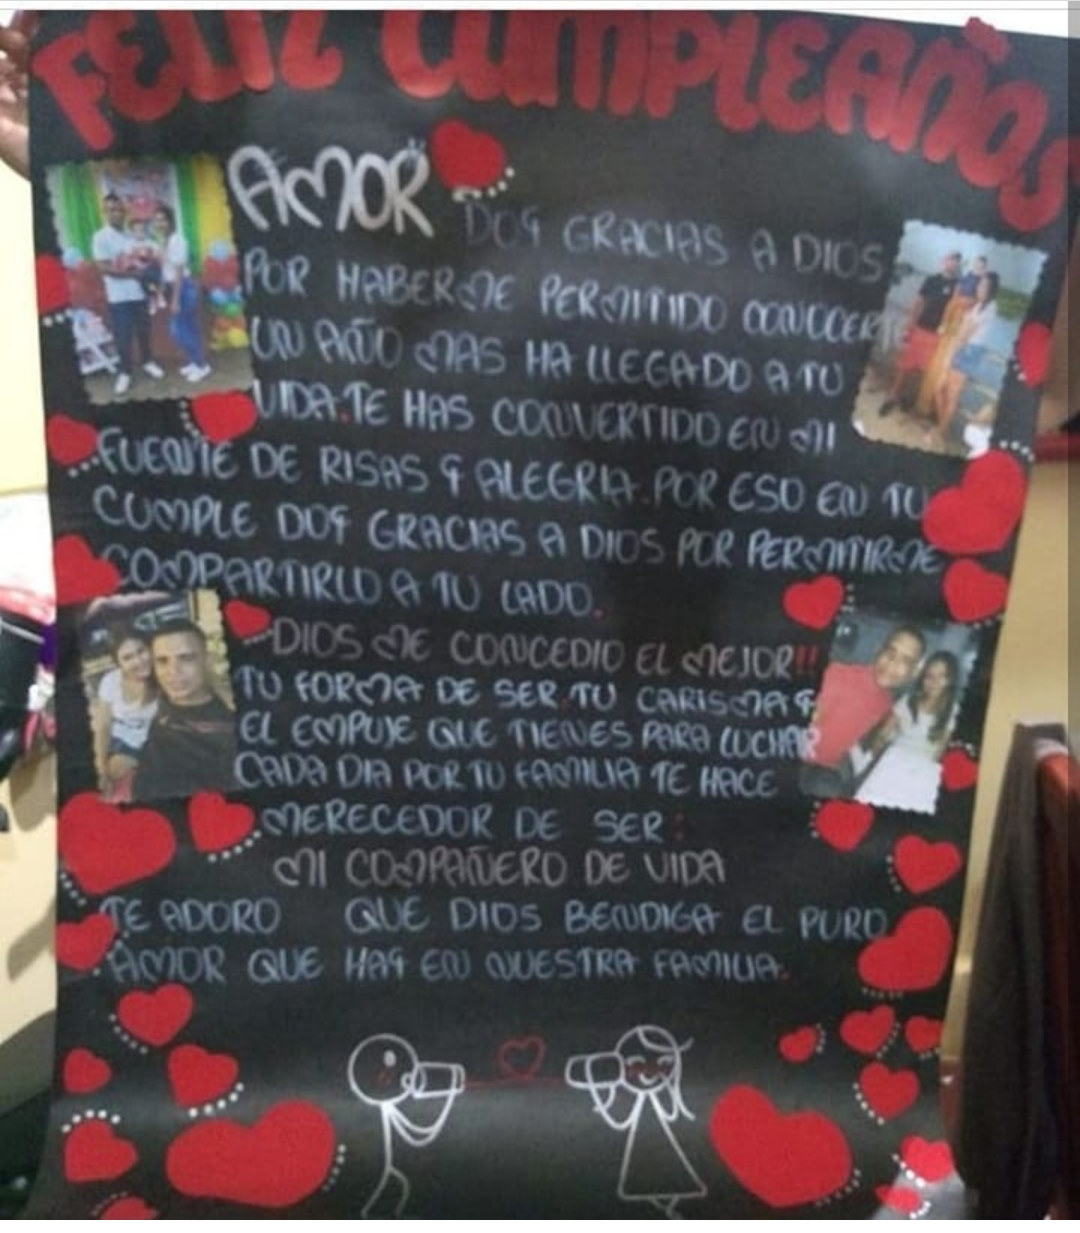 FELIZ CUMPLEAÑOS
AMOR
DOY GRACIAS A DIOS
POR HABERME PERMITIDO CONOCERTE
UN AÑO MAS HA LLEGADO A TU
VIDA.TE HAS CONVERTIDO EN MI
FUENTE DE RISAS Y ALEGRIA.POR ESO EN TU
CUMPLE DOY GRACIAS A DIOS POR PERMITIRME
COMPARTIRLO A TU LADO.
DIOS ME CONCEDIO EL MEJOR!!
TU FORMA DE SER TU CARISMA Y
EL EMPUJE QUE TIENES PARA LUCHAR
CADA DIA POR TU FAMILIA TE HACE
MERECEDOR DE SER:
MI COMPAÑERO DE VIDA
TE ADORO QUE DIOS BENDIGA EL PURO
AMOR QUE HAY EN NUESTRA FAMILIA.